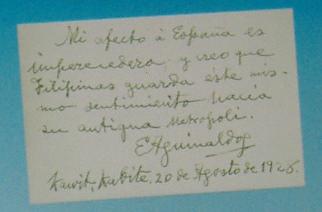 Mi afecto á España es
imperecedera y creo que
Filipinas guarda este mis-
mo sentimiento hacia
su antigua Metropoli.
EAguinaldoy
Kawit, Kabite, 20 de Agosto de 1928.